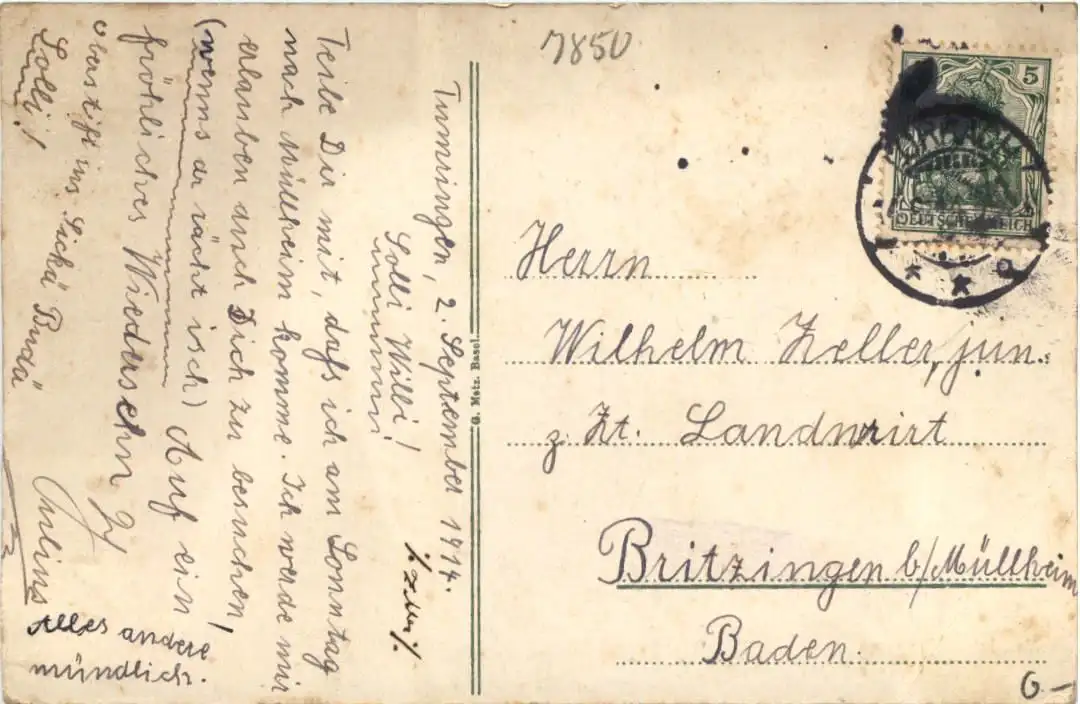 7850
Tumringen, 2. September 1914.
Solli Willi!
Teile Dir mit, dass ich am Sonntag
nach Müllheim komme. Ich werde mir
erlauben auch Dich zu besuchen,
(wenns dr rächt isch) Auf ein
fröhliches Wiedersehn
Solli!
Alles andere
mündlich.
G. Metz, Basel.
5
DEUTSCHES REICH
Herrn
Wilhelm Zeller, jun.
z. Zt. Landwirt
Britzingen b/Müllheim
Baden.
6-